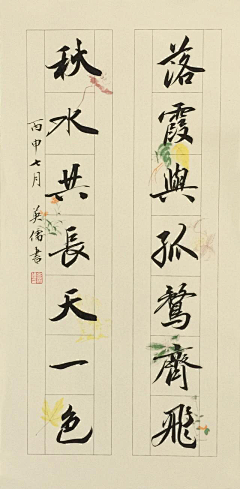 落霞與孤鶩齊飛
秋水共長天一色
丙申七月 英儒書